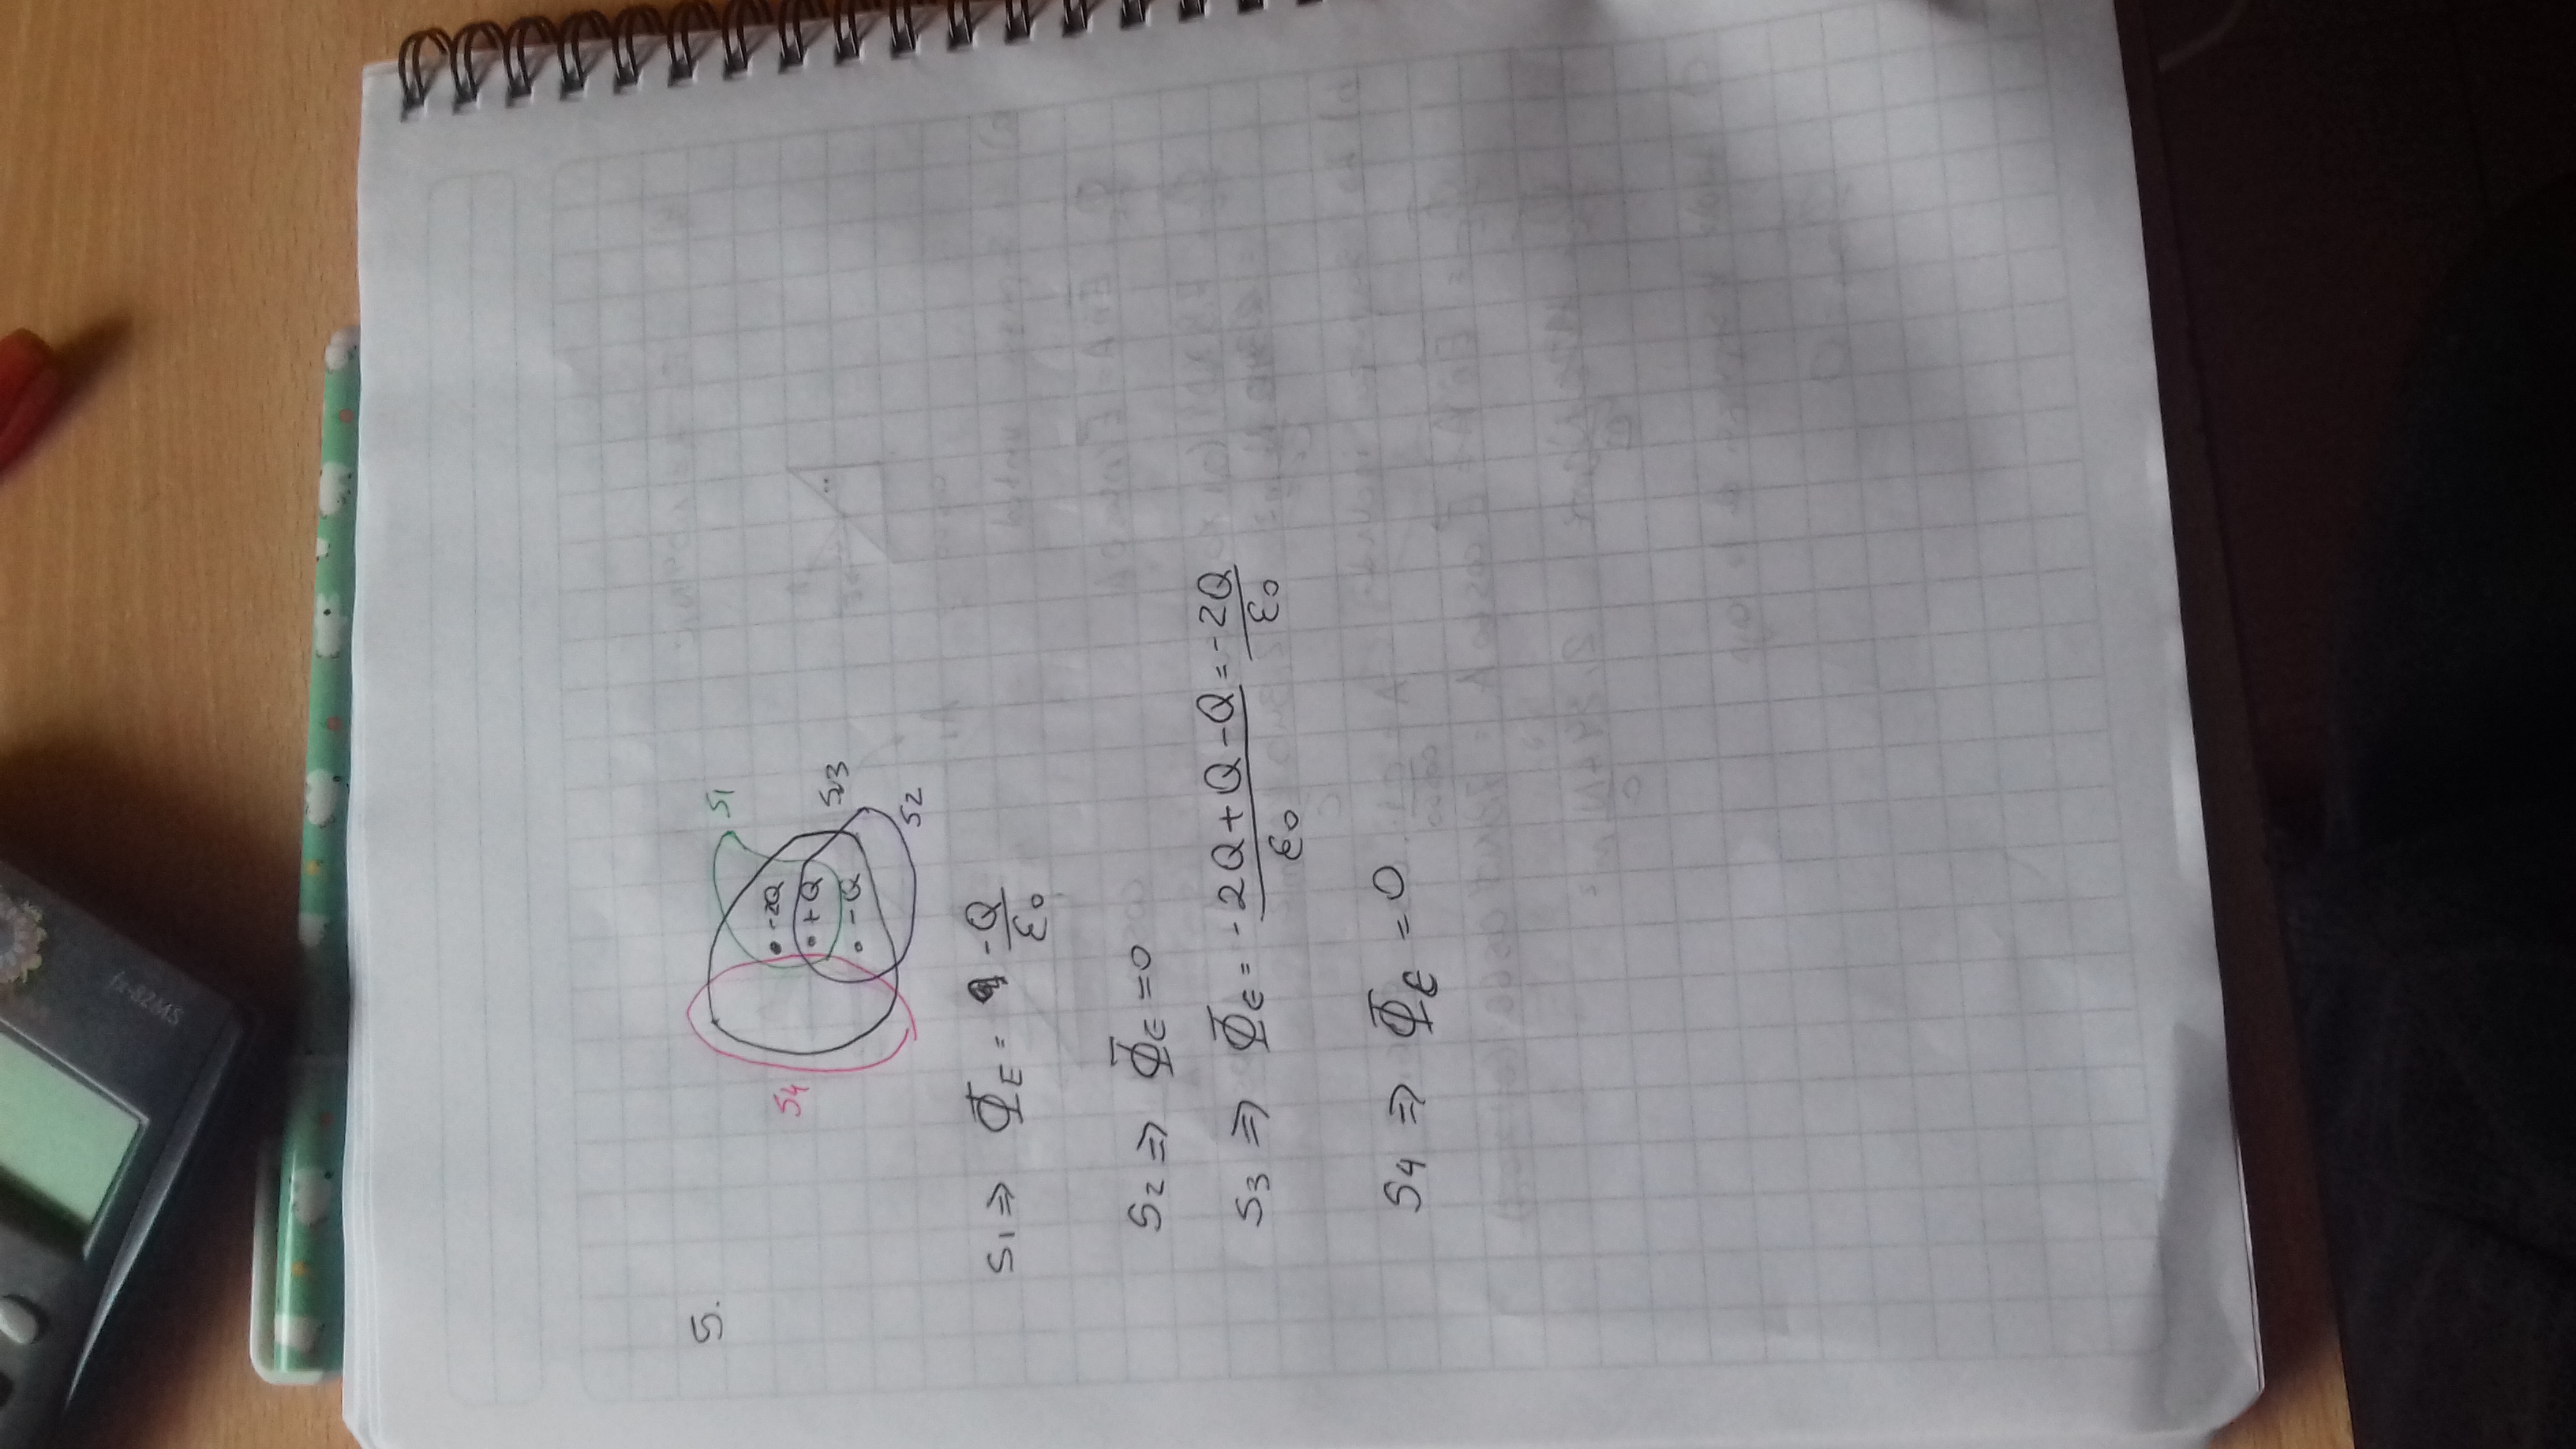 fx-82MS
5.
S1
S4
-2Q
+Q
S3
-Q
S2
S1 ⇒ Φ_E = -Q/ε0
S2 ⇒ Φ_E = 0
S3 ⇒ Φ_E = -2Q+Q-Q/ε0 = -2Q/ε0
S4 ⇒ Φ_E = 0